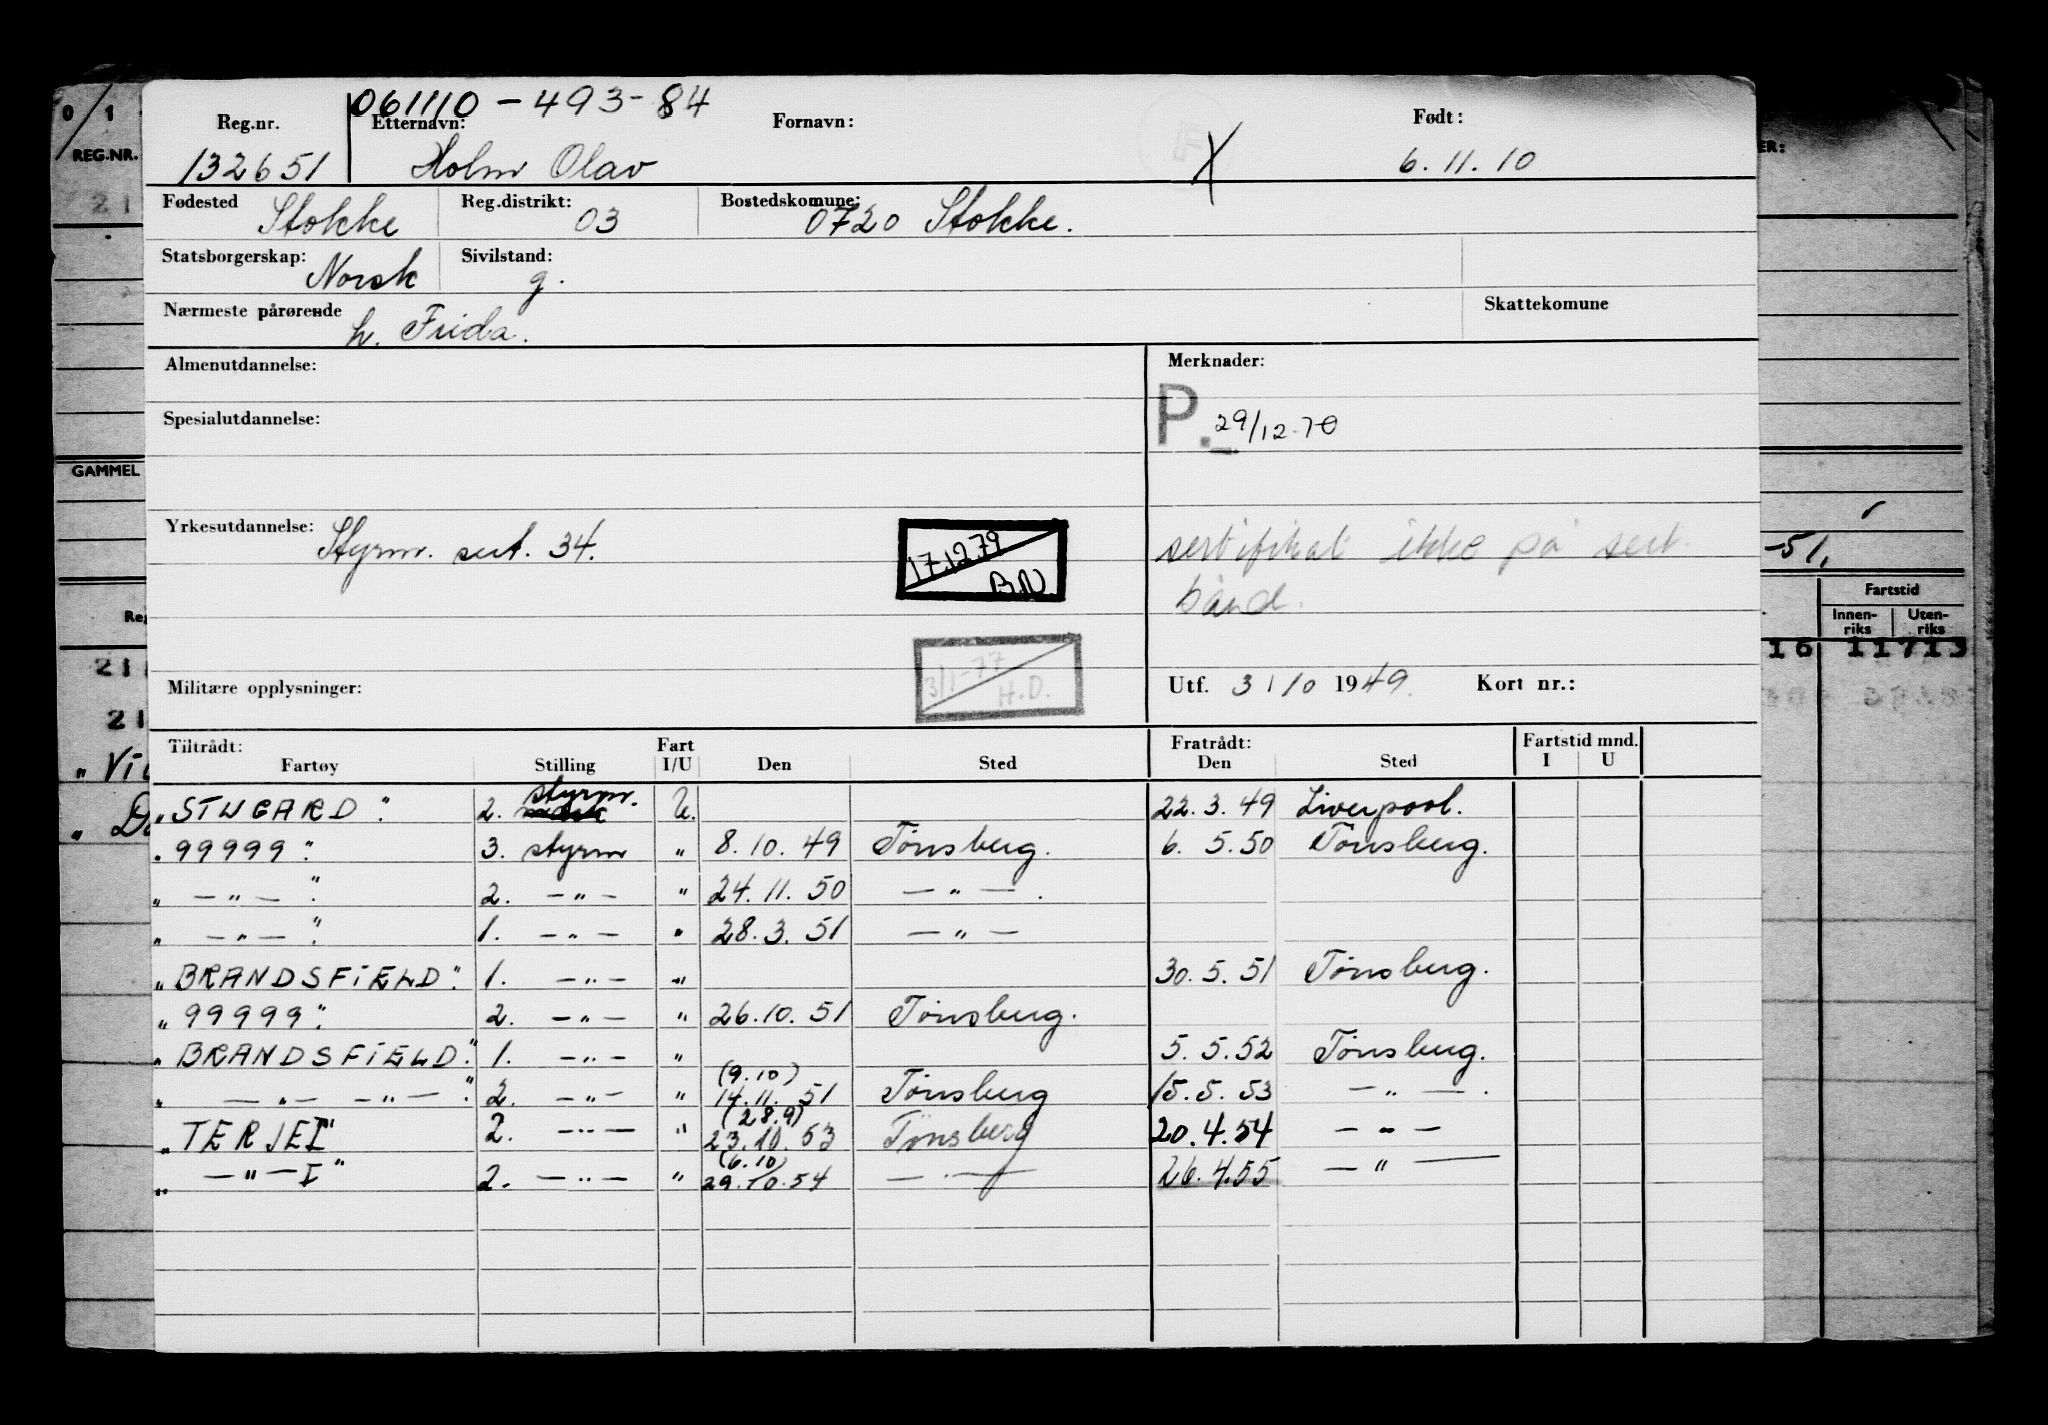 061110-493-84
Reg.nr. Etternavn: Fornavn: Født:
132651 Holm Olav X 6.11.10
Fødested Stokke Reg.distrikt: 03 Bostedskomune: 0720 Stokke.
Statsborgerskap: Norsk Sivilstand: g.
Nærmeste pårørende h. Frida. Skattekomune
Almenutdannelse: Merknader:
P. 29/12-70
Spesialutdannelse:
Yrkesutdannelse: Styrm. sert. 34. 17.12.79 B.N. sertifikat ikke på sert.
bånd.
3/1-77 H.D.
Militære opplysninger: Utf. 31/10 1949. Kort nr.:
Tiltrådt: Fart Fratrådt: Fartstid mnd.
Fartøy Stilling I/U Den Sted Den Sted I U
"STUGARD" 2. styrm. U. 22.3.49 Liverpool.
"99999" 3. styrm " 8.10.49 Tönsberg. 6.5.50 Tönsberg.
" — " — " 2. — " — " 24.11.50 — " — .
" — " — " 1. — " — " 28.3.51 — " —
"BRANDSFIELD" 1. — " — " 30.5.51 Tönsberg.
"99999" 2. — " — " 26.10.51 Tönsberg.
"BRANDSFIELD" 1. — " — " 5.5.52 Tönsberg.
(9.10)
" — " — — " — " 2. — " — " 14.11.51 Tönsberg 15.5.53 — " — .
(28.9)
"TERJE I" 2. — " — " 23.10.53 Tönsberg 20.4.54 — " —
(6.10)
" — " — I" 2. — " — " 29.10.54 — " — 26.4.55 — " —
0/1
REG.NR.
21
GAMMEL
Reg
21
21
"Vi
"D
ER:
-51,
Fartstid
Innen-riks Uten-riks
16 11713